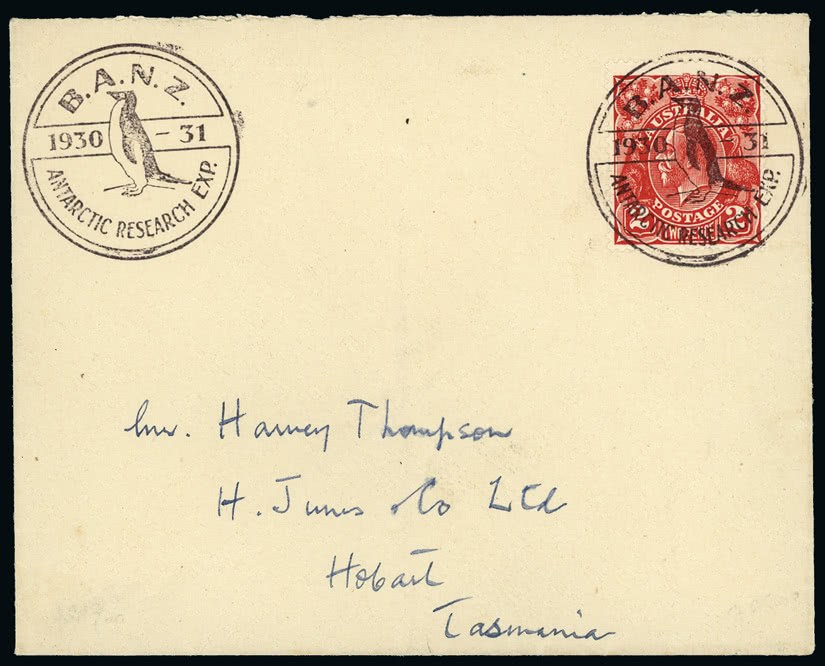 B.A.N.Z.
1930 - 31
ANTARCTIC RESEARCH EXP.
B.A.N.Z.
1930 31
ANTARCTIC RESEARCH EXP.
AUSTRALIA
POSTAGE
2 2
Mr. Harvey Thompson
H. Jones & Co Ltd
Hobart
Tasmania